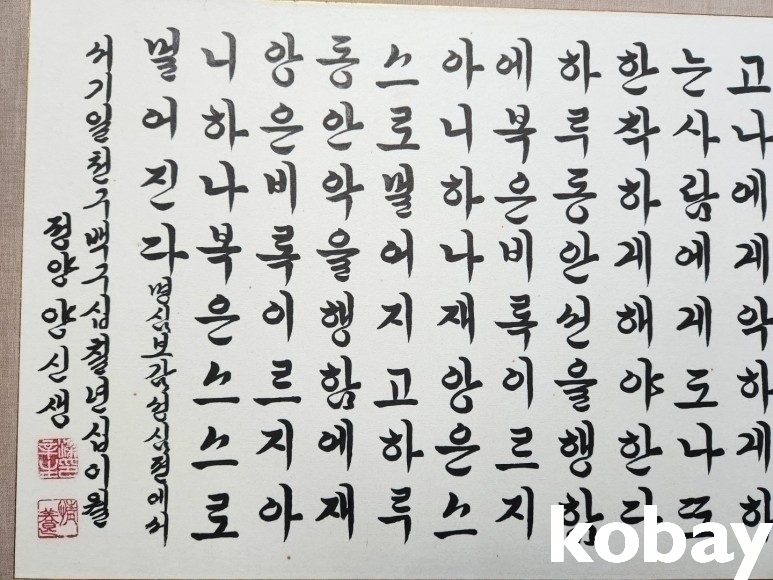 고나에게악하게하
는사람에게도나또
한착하게해야한다
하루동안선을행함
에복은비록이르지
아니하나재앙은스
스로멀어지고하루
동안악을행함에재
앙은비록이르지아
니하나복은스스로
멀어진다 명심보감
서기일천구백구십칠년십이월
정양양신생
kobay